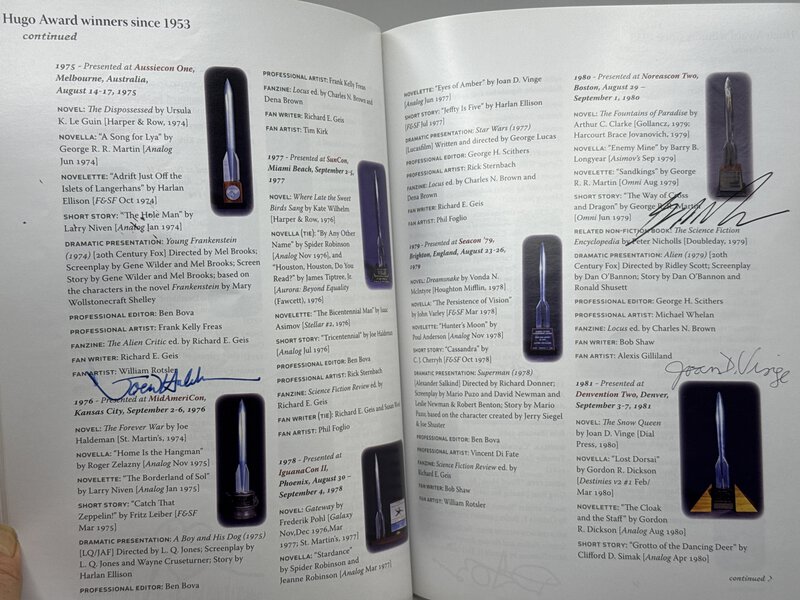 Hugo Award winners since 1953
continued
1975 - Presented at Aussiecon One,
Melbourne, Australia,
August 14-17, 1975
NOVEL: The Dispossessed by Ursula
K. Le Guin [Harper & Row, 1974]
NOVELLA: “A Song for Lya” by
George R. R. Martin [Analog
Jun 1974]
NOVELETTE: “Adrift Just Off the
Islets of Langerhans” by Harlan
Ellison [F&SF Oct 1974]
SHORT STORY: “The Hole Man” by
Larry Niven [Analog Jan 1974]
DRAMATIC PRESENTATION: Young Frankenstein
(1974) [20th Century Fox] Directed by Mel Brooks;
Screenplay by Gene Wilder and Mel Brooks; Screen
Story by Gene Wilder and Mel Brooks; based on
the characters in the novel Frankenstein by Mary
Wollstonecraft Shelley
PROFESSIONAL EDITOR: Ben Bova
PROFESSIONAL ARTIST: Frank Kelly Freas
FANZINE: The Alien Critic ed. by Richard E. Geis
FAN WRITER: Richard E. Geis
FAN ARTIST: William Rotsler
Joe Haldeman
1976 - Presented at MidAmeriCon,
Kansas City, September 2-6, 1976
NOVEL: The Forever War by Joe
Haldeman [St. Martin’s, 1974]
NOVELLA: “Home Is the Hangman”
by Roger Zelazny [Analog Nov 1975]
NOVELETTE: “The Borderland of Sol”
by Larry Niven [Analog Jan 1975]
SHORT STORY: “Catch That
Zeppelin!” by Fritz Leiber [F&SF
Mar 1975]
DRAMATIC PRESENTATION: A Boy and His Dog (1975)
[LQ/JAF] Directed by L. Q. Jones; Screenplay by
L. Q. Jones and Wayne Cruseturner; Story by
Harlan Ellison
PROFESSIONAL EDITOR: Ben Bova
PROFESSIONAL ARTIST: Frank Kelly Freas
FANZINE: Locus ed. by Charles N. Brown and
Dena Brown
FAN WRITER: Richard E. Geis
FAN ARTIST: Tim Kirk
1977 - Presented at SunCon,
Miami Beach, September 2-5,
1977
NOVEL: Where Late the Sweet
Birds Sang by Kate Wilhelm
[Harper & Row, 1976]
NOVELLA (TIE): “By Any Other
Name” by Spider Robinson
[Analog Nov 1976], and
“Houston, Houston, Do You
Read?” by James Tiptree, Jr.
[Aurora: Beyond Equality
(Fawcett), 1976]
NOVELETTE: “The Bicentennial Man” by Isaac
Asimov [Stellar #2, 1976]
SHORT STORY: “Tricentennial” by Joe Haldeman
[Analog Jul 1976]
PROFESSIONAL EDITOR: Ben Bova
PROFESSIONAL ARTIST: Rick Sternbach
FANZINE: Science Fiction Review ed. by
Richard E. Geis
FAN WRITER (TIE): Richard E. Geis and Susan
FAN ARTIST: Phil Foglio
1978 - Presented at
IguanaCon II,
Phoenix, August 30 –
September 4, 1978
NOVEL: Gateway by
Frederik Pohl [Galaxy
Nov,Dec 1976,Mar
1977; St. Martin’s, 1977]
NOVELLA: “Stardance”
by Spider Robinson and
Jeanne Robinson [Analog Mar 1977]
NOVELETTE: “Eyes of Amber” by Joan D. Vinge
[Analog Jun 1977]
SHORT STORY: “Jeffty Is Five” by Harlan Ellison
[F&SF Jul 1977]
DRAMATIC PRESENTATION: Star Wars (1977)
[Lucasfilm] Written and directed by George Lucas
PROFESSIONAL EDITOR: George H. Scithers
PROFESSIONAL ARTIST: Rick Sternbach
FANZINE: Locus ed. by Charles N. Brown and
Dena Brown
FAN WRITER: Richard E. Geis
FAN ARTIST: Phil Foglio
1979 - Presented at Seacon ’79,
Brighton, England, August 23-26,
1979
NOVEL: Dreamsnake by Vonda N.
McIntyre [Houghton Mifflin, 1978]
NOVELLA: “The Persistence of Vision”
by John Varley [F&SF Mar 1978]
NOVELETTE: “Hunter’s Moon” by
Poul Anderson [Analog Nov 1978]
SHORT STORY: “Cassandra” by
C. J. Cherryh [F&SF Oct 1978]
DRAMATIC PRESENTATION: Superman (1978)
[Alexander Salkind] Directed by Richard Donner;
Screenplay by Mario Puzo and David Newman and
Leslie Newman & Robert Benton; Story by Mario
Puzo; based on the character created by Jerry Siegel
& Joe Shuster
PROFESSIONAL EDITOR: Ben Bova
PROFESSIONAL ARTIST: Vincent Di Fate
FANZINE: Science Fiction Review ed. by
Richard E. Geis
FAN WRITER: Bob Shaw
FAN ARTIST: William Rotsler
1980 - Presented at Noreascon Two,
Boston, August 29 –
September 1, 1980
NOVEL: The Fountains of Paradise by
Arthur C. Clarke [Gollancz, 1979;
Harcourt Brace Jovanovich, 1979]
NOVELLA: “Enemy Mine” by Barry B.
Longyear [Asimov’s Sep 1979]
NOVELETTE: “Sandkings” by George
R. R. Martin [Omni Aug 1979]
SHORT STORY: “The Way of Cross
and Dragon” by George R. R. Martin
[Omni Jun 1979]
RELATED NON-FICTION BOOK: The Science Fiction
Encyclopedia by Peter Nicholls [Doubleday, 1979]
DRAMATIC PRESENTATION: Alien (1979) [20th
Century Fox] Directed by Ridley Scott; Screenplay
by Dan O’Bannon; Story by Dan O’Bannon and
Ronald Shusett
PROFESSIONAL EDITOR: George H. Scithers
PROFESSIONAL ARTIST: Michael Whelan
FANZINE: Locus ed. by Charles N. Brown
FAN WRITER: Bob Shaw
FAN ARTIST: Alexis Gilliland
Joan D. Vinge
1981 - Presented at
Denvention Two, Denver,
September 3-7, 1981
NOVEL: The Snow Queen
by Joan D. Vinge [Dial
Press, 1980]
NOVELLA: “Lost Dorsai”
by Gordon R. Dickson
[Destinies v2 #1 Feb/
Mar 1980]
NOVELETTE: “The Cloak
and the Staff” by Gordon
R. Dickson [Analog Aug 1980]
SHORT STORY: “Grotto of the Dancing Deer” by
Clifford D. Simak [Analog Apr 1980]
continued